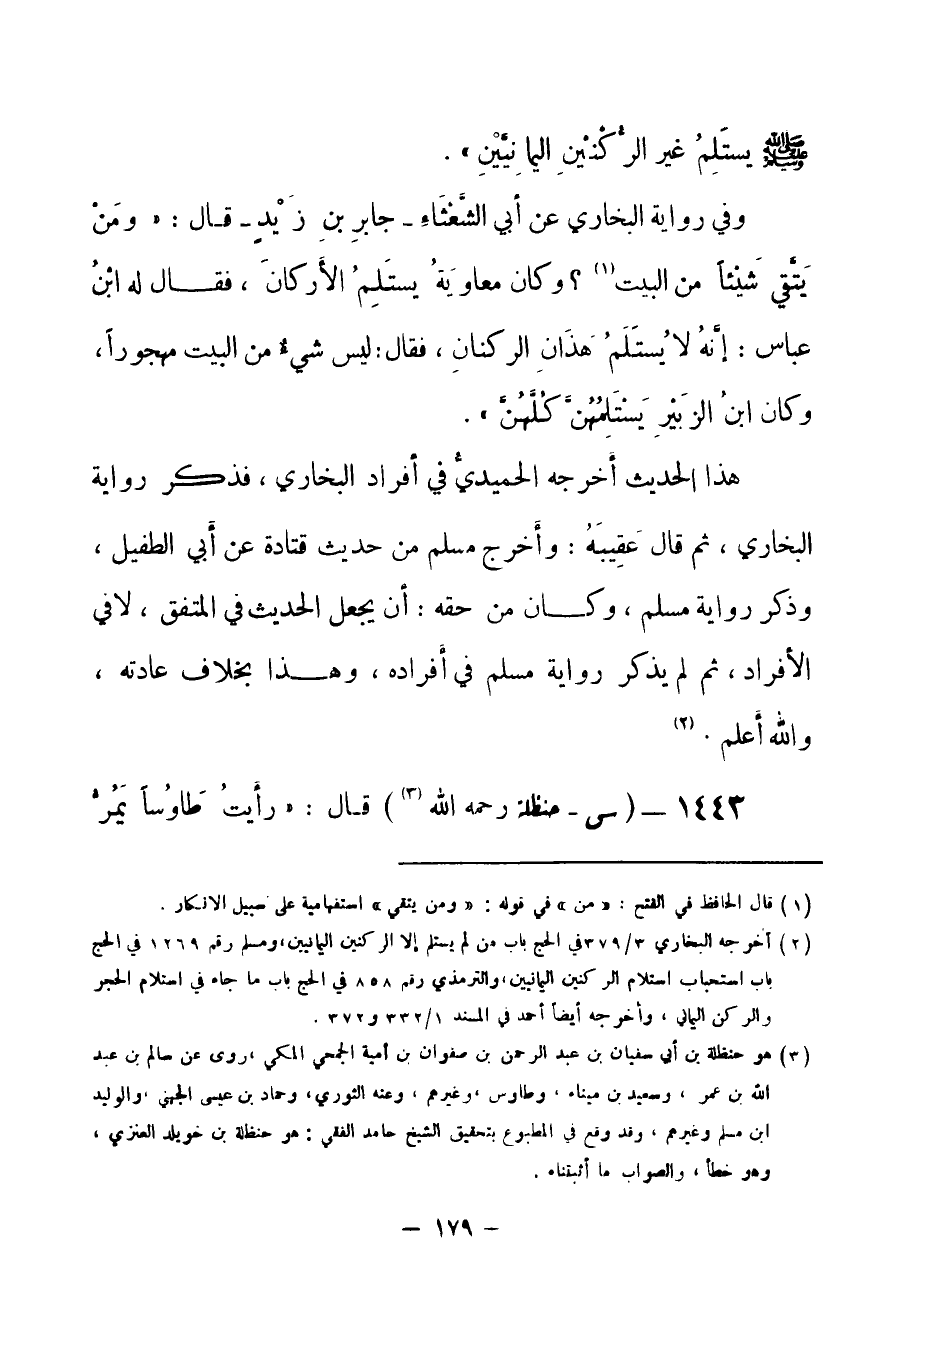 ﷺ يستَلِمُ غير الرُّكْنَيْنِ اليمانِيَّيْنِ » .
وفي رواية البخاري عن أبي الشَّعْثَاءِ ـ جابرِ بنِ زَيْدٍ ـ قال : « ومَنْ
يَتَّقي شَيْئاً من البيت (١) ؟ وكان معاويَةُ يستَلِمُ الأَركانَ ، فقال له ابنُ
عباس : إنَّهُ لا يُستَلَمُ هذَانِ الركنانِ ، فقال : ليس شيءٌ من البيت مهجوراً ،
وكان ابنُ الزبَيْرِ يَسْتَلِمُهُنَّ كُلَّهُنَّ » .
هذا الحديث أخرجه الحميديُّ في أفراد البخاري ، فذكر رواية
البخاري ، ثم قال عَقِيبَهُ : وأَخرج مسلم من حديث قتادة عن أَبي الطفيل ،
وذكر رواية مسلم ، وكان من حقه : أن يجعل الحديث في المتفق ، لا في
الأفراد ، ثم لم يذكر رواية مسلم في أَفراده ، وهذا بخلاف عادته ،
والله أَعلم . (٢)
١٤٤٣ ــ ( س ـ حنظلة رحمه الله (٣) ) قال : « رأَيتُ طَاوُساً يَمُرُّ
(١) قال الحافظ في الفتح : « من » في قوله : « ومن يتقي » استفهامية على سبيل الانكار .
(٢) أخرجه البخاري ٣٧٩/٣ في الحج باب من لم يستلم إلا الركنين اليمانيين ، ومسلم رقم ١٢٦٩ في الحج
باب استحباب استلام الركنين اليمانيين ، والترمذي رقم ٨٥٨ في الحج باب ما جاء في استلام الحجر
والركن اليماني ، وأخرجه أيضاً أحمد في المسند ٣٣٢/١ و ٣٧٢ .
(٣) هو حنظلة بن أبي سفيان بن عبد الرحمن بن صفوان بن أمية الجمحي المكي ، روى عن سالم بن عبد
الله بن عمر ، وسعيد بن ميناء ، وطاوس ، وغيرهم ، وعنه الثوري ، وحماد بن عيسى الجهني ، والوليد
ابن مسلم وغيرهم ، وقد وقع في المطبوع بتحقيق الشيخ حامد الفقي : هو حنظلة بن خويلد العنزي ،
وهو خطأ ، والصواب ما أثبتناه .
– ١٧٩ –